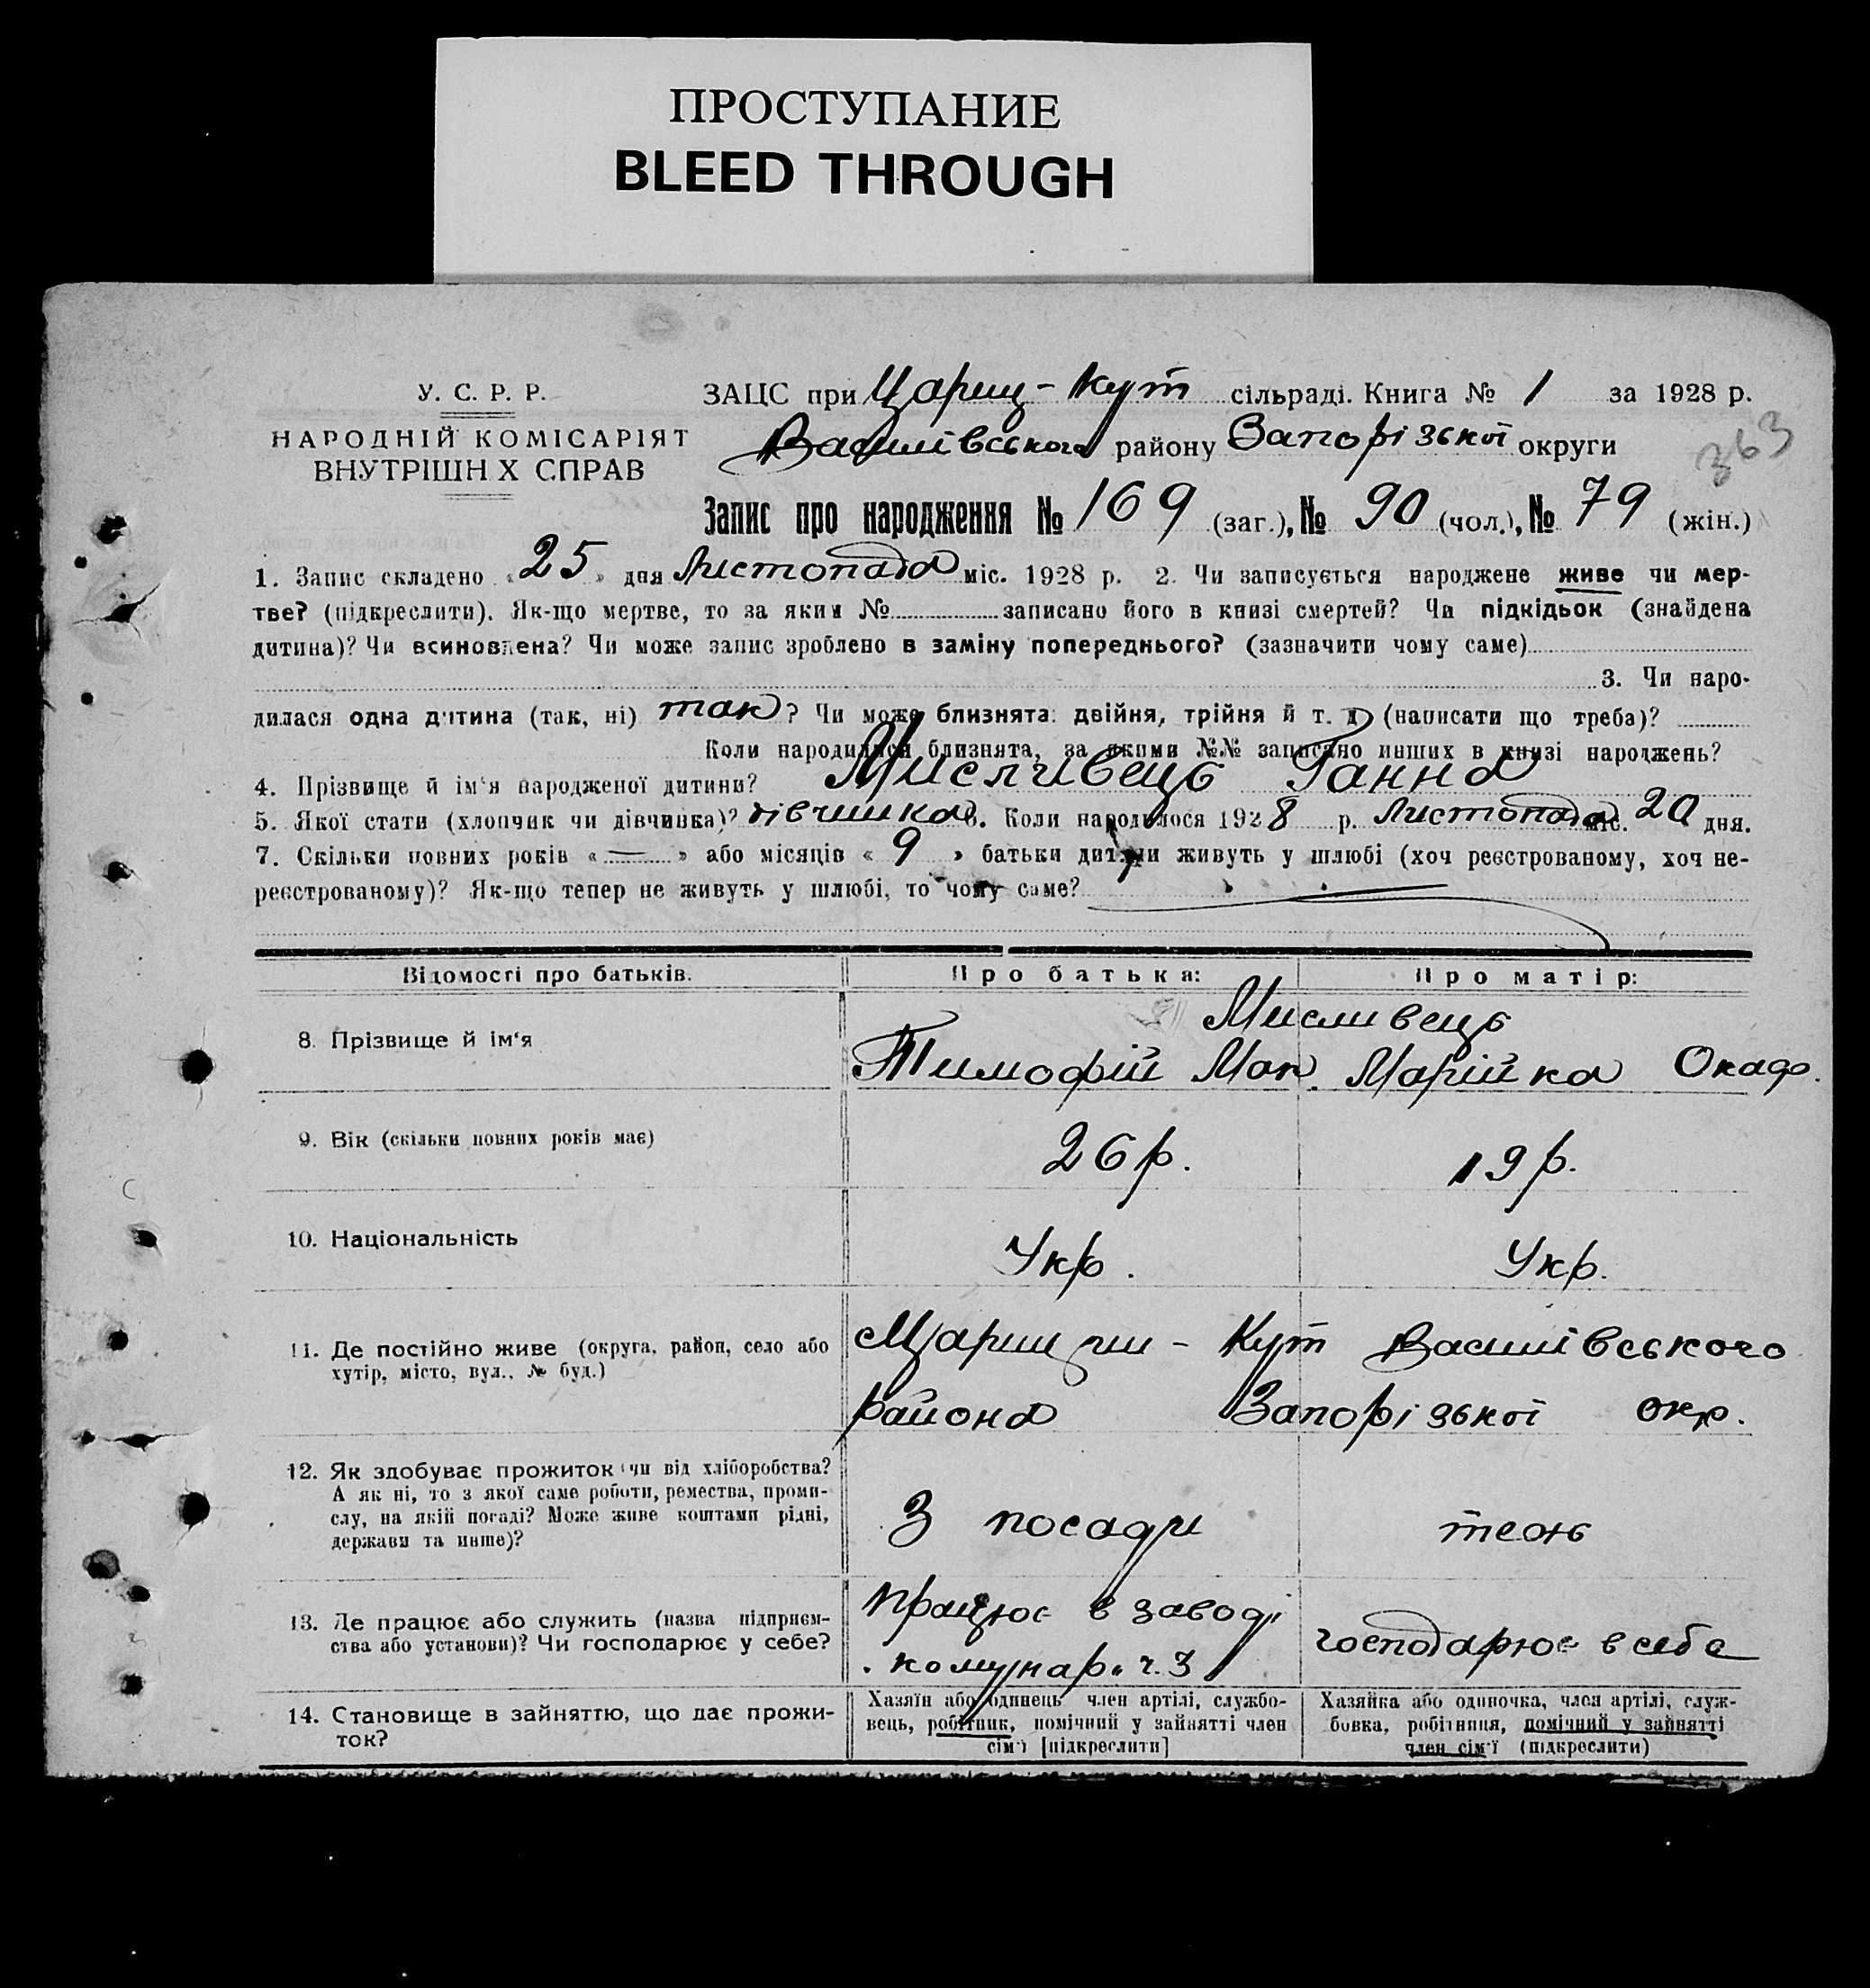 ПРОСТУПАНИЕ
BLEED THROUGH
У. С. Р. Р.
НАРОДНІЙ КОМІСАРІЯТ
ВНУТРІШН Х СПРАВ
ЗАЦС при Цариц-Кут сільраді. Книга № 1 за 1928 р.
Василівського району Запорізької округи
363
Запис про народження № 169 (заг.), № 90 (чол.), № 79 (жін.)
1. Запис складено «25» дня Листопада міс. 1928 р. 2. Чи записується народжене живе чи мер-
тве? (підкреслити). Як-що мертве, то за яким № записано його в книзі смертей? Чи підкідьок (знайдена
дитина)? Чи всиновлена? Чи може запис зроблено в заміну попереднього? (зазначити чому саме)
3. Чи наро-
дилася одна дитина (так, ні) так? Чи може близнята: двійня, трійня й т. д (написати що треба)?
Коли народилися близнята, за якими №№ записано инших в книзі народжень?
4. Прізвище й ім'я народженої дитини? Мисливець Ганна
5. Якої стати (хлопчик чи дівчинка)? дівчинка 6. Коли народилося 1928 р. Листопада міс. 20 дня.
7. Скільки повних років «—» або місяців «9» батьки дитини живуть у шлюбі (хоч реєстрованому, хоч не-
реєстрованому)? Як-що тепер не живуть у шлюбі, то чому саме?
Відомості про батьків. Про батька: Про матір:
Мисливець
8. Прізвище й ім'я Тимофій Мак. Марійка Окаф.
9. Вік (скільки повних років має) 26 р. 19 р.
10. Національність Укр. Укр.
11. Де постійно живе (округа, район, село або
хутір, місто, вул., № буд.)
Царицин-Кут Василівського
района Запорізької окр.
12. Як здобуває прожиток (чи від хліборобства?
А як ні, то з якої саме роботи, ремества, проми-
слу, на якій посаді? Може живе коштами рідні,
держави та инше)?
З посади теж
13. Де працює або служить (назва підприєм-
ства або установи)? Чи господарює у себе?
працює в заводі
"комунар" ч. 3
господарює в себе
14. Становище в зайняттю, що дає прожи-
ток?
Хазяїн або одинець член артілі, службо-
вець, робітник, помічний у зайнятті член
сім'ї [підкреслити]
Хазяйка або одиночка, член артілі, служ-
бовка, робітниця, помічний у зайнятті
член сім'ї (підкреслити)